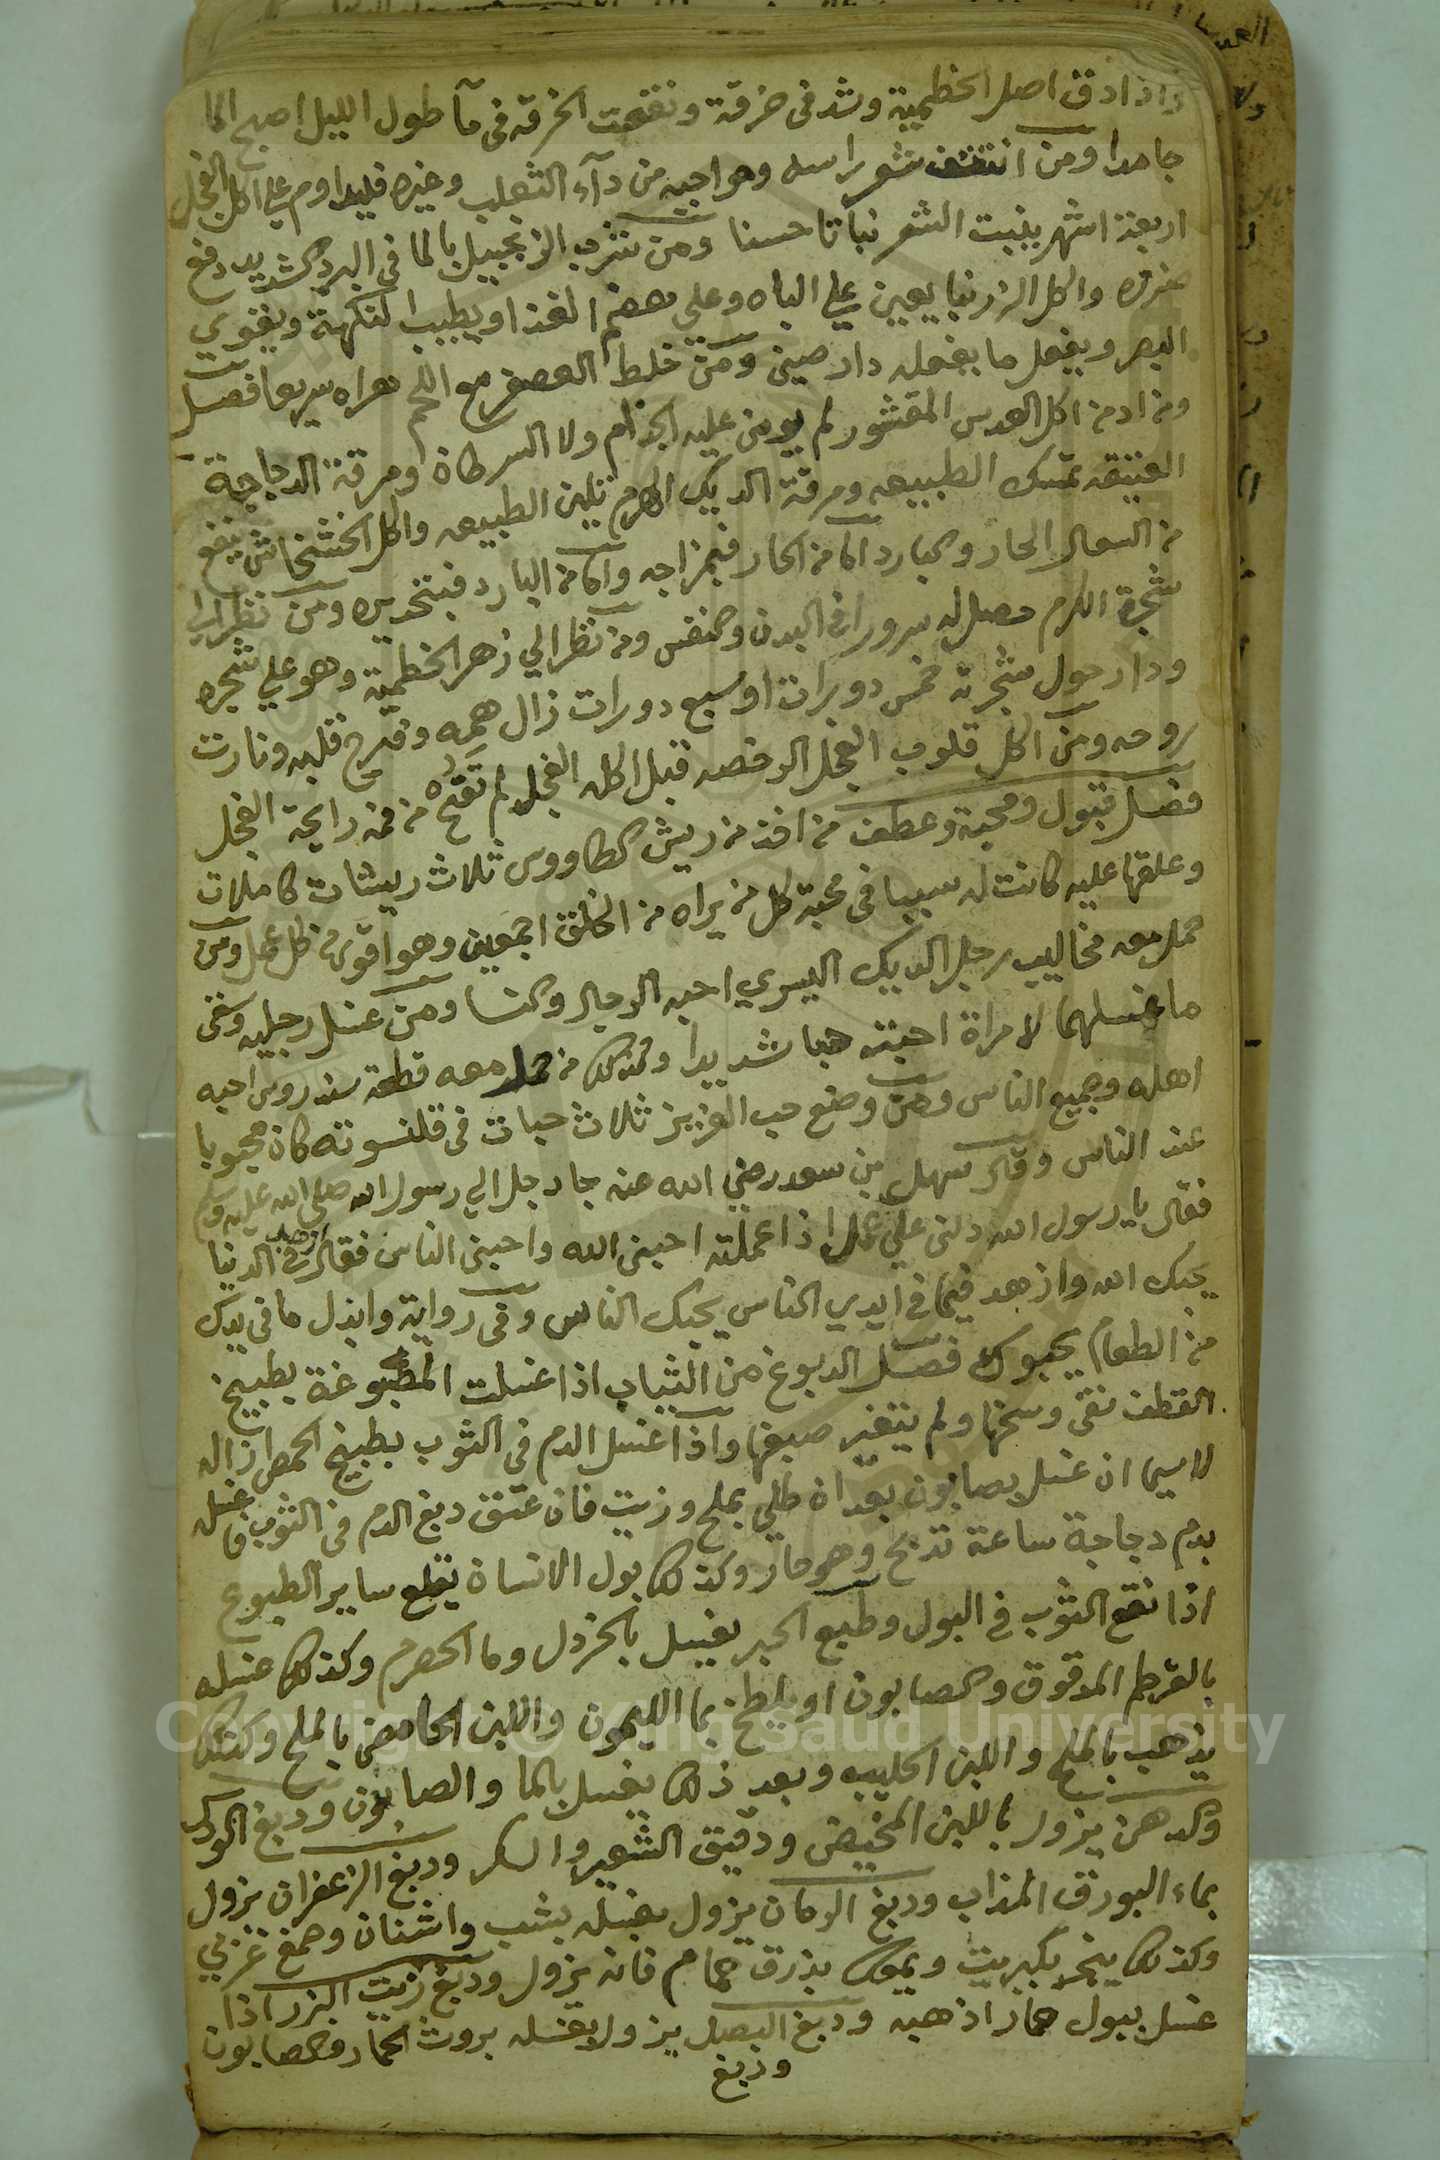 واذا دق اصل الخطمية وشد في خرقة ونقعت الخرقه في مآ طول الليل اصبح الما
جامدا ومن انتتف شعر راسه وحواجبه من دآء الثعلب وغيره فليداوم علي اكل الفجل
اربعة اشهر ينبت الشعر نباتا حسنا ومن شرب الزنجبيل بالما في البرد الشديد دفع
ضرره واكل الزرنبا يعين علي الباه وعلي هضم الغذا ويطيب النكهة ويقوي
البصر ويفعل ما يفعله دار صيني ومن خلط العصفر مع اللحم هراه سريعا فصل
ومن ادمن اكل العدس المقشور لم يومن عليه الجذام ولا السرطان ومرقة الدجاجة
العتيقه تمسك الطبيعه ومرقة الديك الهرم تلين الطبيعه واكل الخشخاش ينفع
من السعال الحار والبارد اما من الحار فبمزاجه واما من البارد فبتخديره ومن نظر الي
شجرة الكرم حصل له سرورا في البدن والنفس ومن نظر الي زهر الخطمية وهو علي شجره
ودار حول شجرته خمس دورات او سبع دورات زال همه وفرح قلبه ونارت
روحه ومن اكل قلوب الفجل الرخصه قبل اكله الفجل لم تفح من فمه رايحة الفجل
فصل قبول ومحبة وعطف من اخذ من ريش الطاووس ثلاث ريشات كاملات
وعلقها عليه كانت له سببا في محبة كل من يراه من الخلق اجمعين وهو اقوي من كل عمل ومن
حمل معه مخاليب رجل الديك اليسري احبه الرجال والنسا ومن غسل رجليه وسقي
ما غسلهما لامراة احبته حبا شديدا وكذلك من حمل معه قطعة سندروس احبه
اهله وجميع الناس ومن وضع حب العزيز ثلاث حبات في قلنسوته كان محبوبا
عند الناس وقال سهل بن سعد رضي الله عنه جا رجل الي رسول الله صلي الله عليه وسلم
فقال يا رسول الله دلني علي عمل اذا عملته احبني الله واحبني الناس فقال ازهد في الدنيا
يحبك الله وازهد فيما في ايدي الناس يحبك الناس وفي رواية وابذل ما في يدك
من الطعام يحبوك فصل الدبوغ من الثياب اذا غسلت المصبوغة بطبيخ
القطف نقي وسخها ولم يتغير صبغها واذا غسل الدم في الثوب بطبيخ الحمص ازاله
لا سيما ان غسل بصابون بعد ان طلي بملح وزيت فان عتق دبغ الدم في الثوب فاغسله
بدم دجاجة ساعة تذبح وهو حار وكذلك بول الانسان يقلع ساير الطبوع
اذا نقع الثوب في البول وطبع الحبر يغسل بالخردل وما الحصرم وكذلك غسله
بالقرطم المدقوق والصابون او يلطخ بما الليمون واللبن الحامض بالملح وكذلك
يذهب بالملح واللبن الحليب وبعد ذلك يغسل بالما والصابون ودبغ الودك
والدهن يزول باللبن المخيض ودقيق الشعير والسكر ودبغ الزعفران يزول
بماء البورق المذاب ودبغ الرمان يزول بغسله بشب واشنان وصمغ عربي
وكذلك يبخر بكبريت ويمعك بذرق حمام فانه يزول ودبغ زيت البزر اذا
غسل ببول حمار اذهبه ودبغ البصل يزول بغسله بروث الحمار والصابون
ودبغ
Copyright © King Saud University